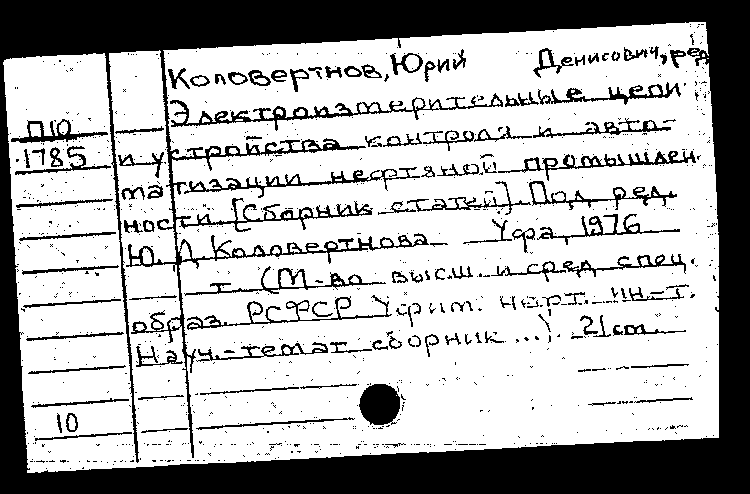 Коловертнов, Юрий Денисович, ред
П10 Электроизмерительные цепи
1785 и устройства контроля и авто-
матизации нефтяной промышлен-
ности. [Сборник статей]. Под ред.
Ю. Д. Коловертнова Уфа, 1976
т. (М-во высш. и сред. спец.
образ. РСФСР. Уфим. нефт. ин.-т.
Науч.-темат сборник ...). 21 cm.
10